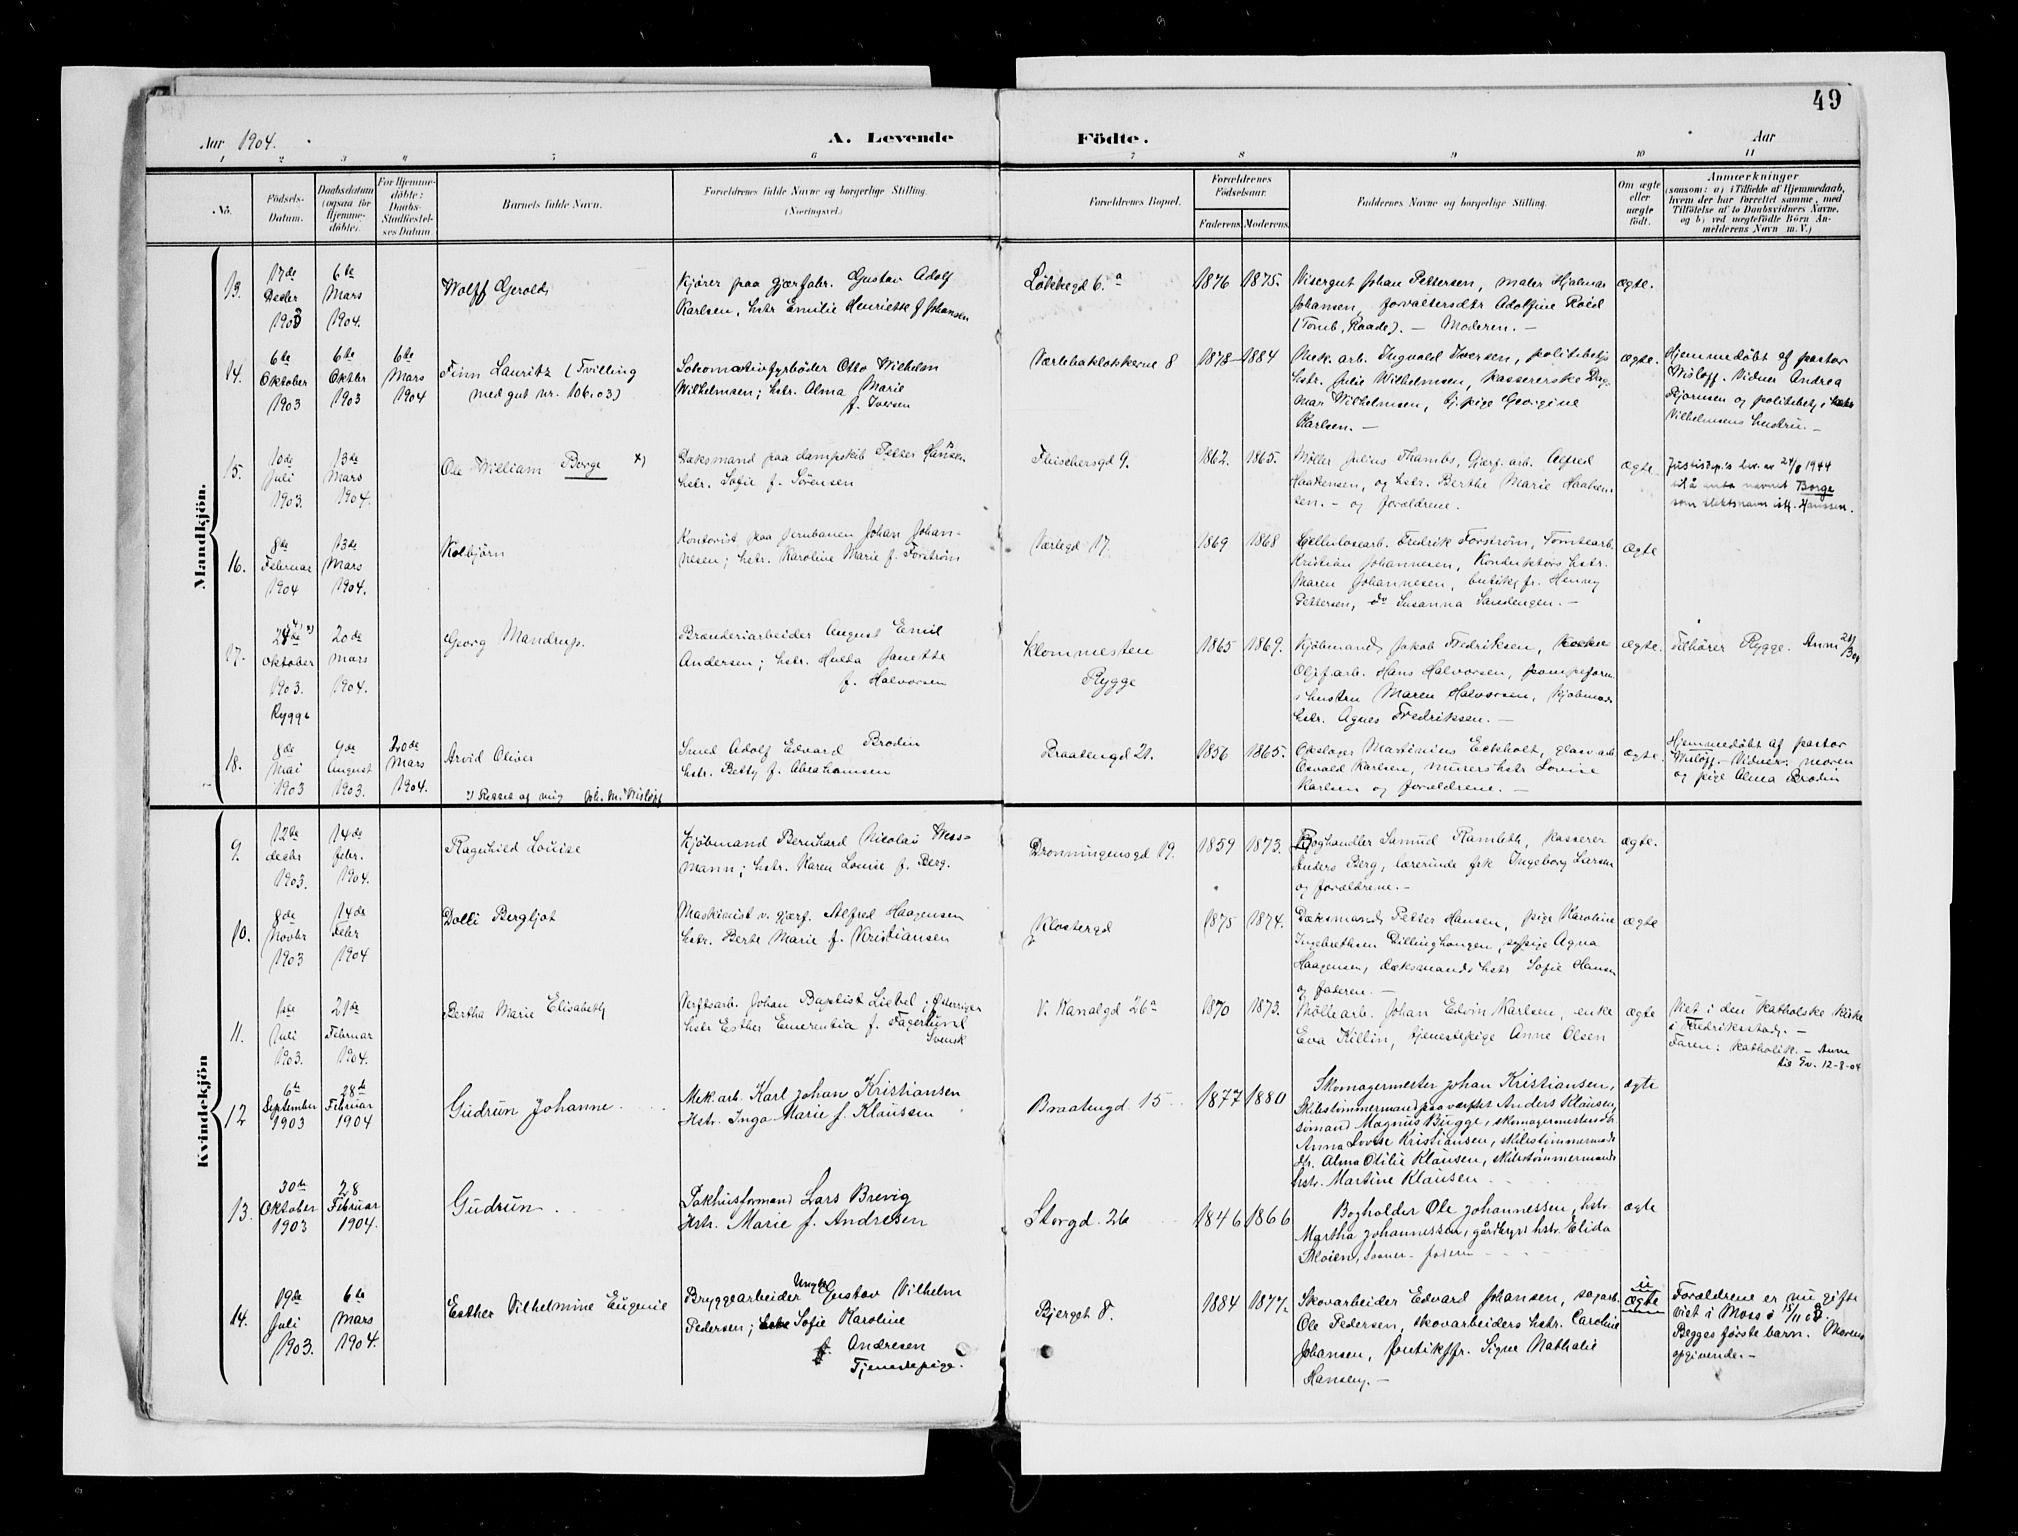 49
Aar 1904. A. Levende Födte. Aar
1 2 3 4 5 6 7 8 9 10 11
No.
Födsels-
Datum.
Daabsdatum
(ogsaa for
Hjemme-
döbte).
For Hjemme-
döbte:
Daabs-
Stadfæstel-
ses Datum.
Barnets fulde Navn.
Forældrenes fulde Navne og borgerlige Stilling.
(Næringsvei.)
Forældrenes Bopæl.
Forældrenes
Födselsaar.
Faderens. Moderens.
Faddernes Navne og borgerlige Stilling.
Om ægte
eller
uægte
födt.
Anmærkninger
(saasom: a) i Tilfælde af Hjemmedaab,
hvem der har forrettet samme, med
Tilföielse af to Daabsvidners Navne.
og b) ved uægtefödte Börn An-
melderens Navn m. V.)
Mandkjön.
13.
17de
Decbr
1903
6te
Mars
1904.
Wolff Gerold
Kjører paa gjærfabr. Gustav Adolf
Karlsen, hstr Emilie Henriette f Johansen
Løkkegd 6.a
1876 1875.
Visergut Johan Pettersen, maler Hjalmar
Johansen, forvaltersdtr Adolfine Roed
(Tomb, Raade). — Moderen. —
ægte.
14.
6te
Oktober
1903
6te
Oktbr
1903
6te
Mars
1904
Finn Lauritz (Tvilling
med gut nr. 106.03)
Lokomotivfyrbøder Otto Wilhelm
Wilhelmsen; hstr. Alma Marie
f. Iversen
Værlebaklokkerne 8
1878 1884
Mek. arb. Ingvald Iversen, politibetj
hstr. Julie Wilhelmsen, kassererske Dag
mar Wilhelmsen, tj. pige Georgine
Karlsen. —
ægte.
Hjemmedøbt af pastor
Wisløff. Vidner Andrea
Bjørnsen og politibetj.
Vilhelmsens hustru. —
15.
10de
Juli
1903.
13de
Mars
1904.
Ole William Borge x)
Dæksmand paa dampskib Petter Hansen
hstr. Sofie f. Sørensen
Fleischersgd 9.
1862. 1865.
Møller Julius Thambs, Gjærf. arb. Alfred
Haakensen, og hstr. Berthe Marie Haaken-
sen. — og forældrene.
ægte.
Justisdep.s bev. av 24/8 1944
til å anta navnet Borge
som slektsnavn istf. Hanssen.
16.
8de
Februar
1904
13de
Mars
1904.
Kolbjørn
Kontorist paa jernbanen Johan Johan-
nesen; hstr. Karoline Marie f. Forstrøm
Værlegd 17.
1869 1868
Cellulosearb. Fredrik Forstrøm, Tomtearb.
Kristian Johannesen, Konduktørs hstr.
Maren Johannesen, butikfr. Henny
Pettersen, do Susanna Sandengen. —
ægte
17.
Oktober
1903.
Rygge
20de
Mars
1904.
Georg Mandrup.
Brænderiarbeider August Emil
Andersen; hstr. Hulda Janette
f. Halvorsen
Klommesten
Rygge
1865 1869.
Kjøbmand Jakob Fredriksen,
Oljef. arb. Hans Halvorsen,
hustru Maren Halvorsen, kjøbmds
hstr. Agnes Fredriksen. —
ægte.
Tilhører Rygge. Anm
18.
8de
Mai
1903
9de
August
1903.
20de
Mars
1904.
Arvid Oliver
x) Rettet af mig Joh. M. Wisløff
Smed Adolf Edvard Brodin
hstr. Betty f. Abrahamsen
Braatengd 21.
1856 1865.
Opslager Martinius Eckholt, glasv. arb
Osvald Karlsen, murers hstr Lovise
Karlsen og forældrene. —
ægte.
Hjemmedøbt af pastor
Wisløff. Vidner: moren
og pige Alma Brodin
Kvindekjön
9.
12te
decbr
1903.
14de
febr.
1904.
Ragnhild Louise
Kjøbmand Bernhard Nicolai Wess-
mann; hstr. Karen Louise f. Berg.
Dronningensgd 19.
1859 1873.
Boghandler Samuel Flamleth, kasserer
Anders Berg, lærerinde frk Ingeborg Larsen
og forældrene. —
ægte.
10.
8de
Novbr
1903
14de
Febr
1904
Dolli Bergljot
Maskinist v. gjærf. Alfred Haagensen
hstr. Berte Marie f. Kristiansen
Klostergd
1875 1874.
Dæksmand Petter Hansen, pige Karoline
Ingebrethsen Dillinghaugen, pige Agna
Haagensen, dæksmands hstr Sofie Hansen
og faderen. —
ægte
11.
1ste
Juli
1903.
21de
Februar
1904.
Bertha Marie Elisabeth
Verftsarb. Johan Baptist Liebel, Østerriger
hstr Esther Emerentia f. Fagerlund
Svensk
V. Kanalgd 26a
1870 1873.
Møllearb. Johan Edvin Karlsen, enke
Eva Killin, tjenestepige Anne Olsen
ægte
Viet i den katholske kirke
i Fredriksstad. —
Faren: katholik. — Anm
til Sv. 12-8-04
12
6te
September
1903
28de
Februar
1904
Gudrun Johanne
Mek. arb. Karl Johan Kristiansen
Hstr. Inga Marie f. Klaussen
Braatengd. 15
1877 1880
Skomagermester Johan Kristiansen,
Skibstømmermand paa værftet Anders Klausen,
sømand Magnus Bugge, skomagermestersdtr
Anna Lovise Kristiansen, skibstømmermands
dtr. Alma Otilie Klausen, skibstømmermands
hstr. Martine Klausen
ægte
13.
30te
Oktober
1903
28
Februar
1904.
Gudrun
Pakhusformand Lars Brevig
Hstr. Marie f. Andresen
Storgd. 26
1846 1866
Bogholder Ole Johannessen, hstr.
Martha Johannessen, gårdbrgs hstr. Elida
Moien, Sooner. faderen
ægte
14.
19de
Juli
1903.
6te
Mars
1904.
Esther Vilhelmine Eugenie
Bryggearbeider Ungk Gustav Vilhelm
Pedersen; Sofie Karoline
f. Andresen
Tjenestepige.
Bjerget 8.
1884 1877.
Skovarbeider Edvard Johansen, sagarb.
Ole Pedersen, skovarbeiders hstr. Caroline
Johansen, butikfr. Signe Nathalie
Hansen. —
u
ægte
Forældrene er nu gifte
viet i Moss 15/11 08.
Begges første barn. Moren
opgivende. —